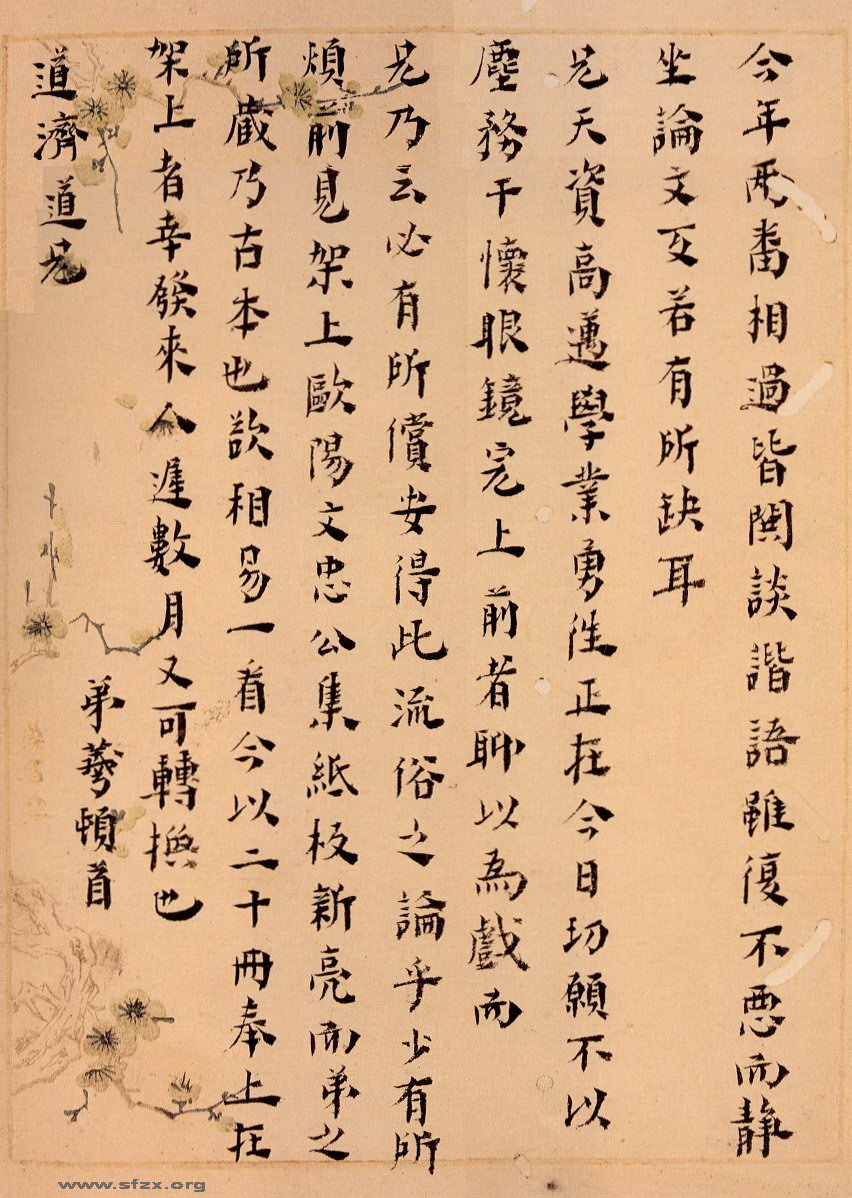 今年兩番相過皆閑談諧語雖復不惡而靜
坐論文互若有所缺耳
兄天資高邁學業勇進正在今日切願不以
塵務干懷眼鏡完上前者聊以為戲而
兄乃云必有所償安得此流俗之論乎少有所
煩前見架上歐陽文忠公集紙板新亮而弟之
所藏乃古本也欲相易一看今以二十冊奉上在
架上者幸發來人遲數月又可轉換也
道濟道兄
弟萼頓首
www.sfzx.org